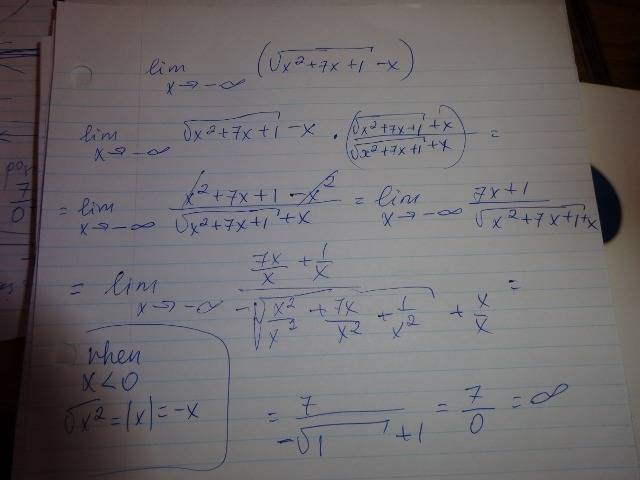 lim x→-∞ (√x²+7x+1 -x)
lim x→-∞ √x²+7x+1 -x · (√x²+7x+1 +x / √x²+7x+1 +x) =
= lim x→-∞ x²+7x+1-x² / √x²+7x+1 +x = lim x→-∞ 7x+1 / √x²+7x+1 +x
= lim x→-∞ 7x/x + 1/x / -√x²/x² + 7x/x² + 1/x² + x/x =
when
x<0
√x² = |x| = -x
= 7 / -√1 +1 = 7/0 = ∞
7
0